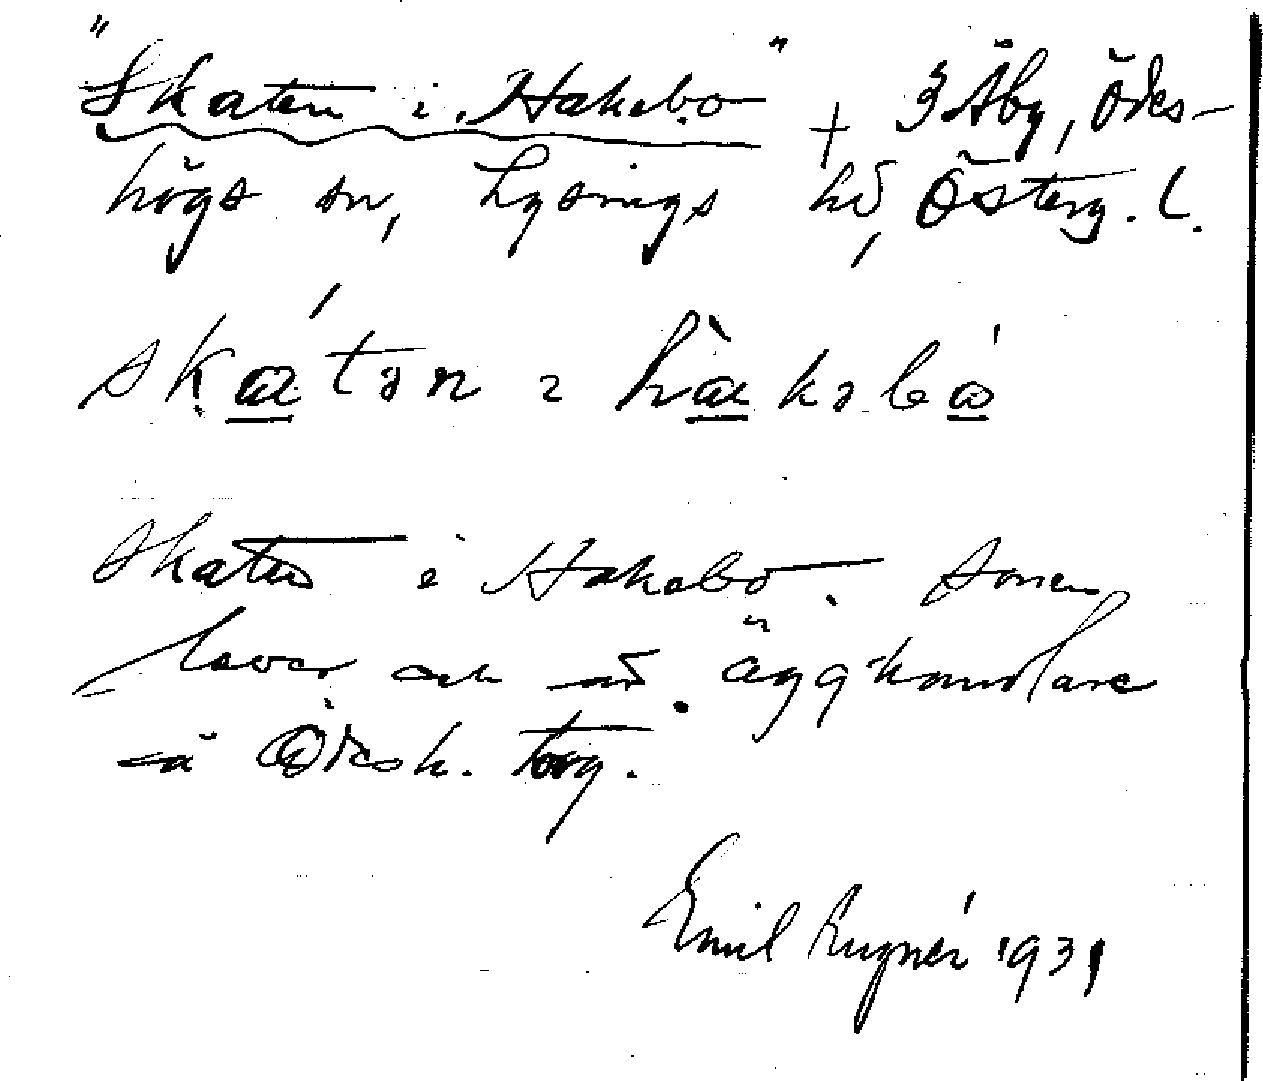 "Skaten i Hakebo" + 3 Åby, Ödes-
högs sn, Lysings hd, Österg. l.
skatən i hakəbo
Skaten i Hakebo. Sonen
lever och är ägghandlare
i Ödesh. torg.
Emil Rugnér 1931